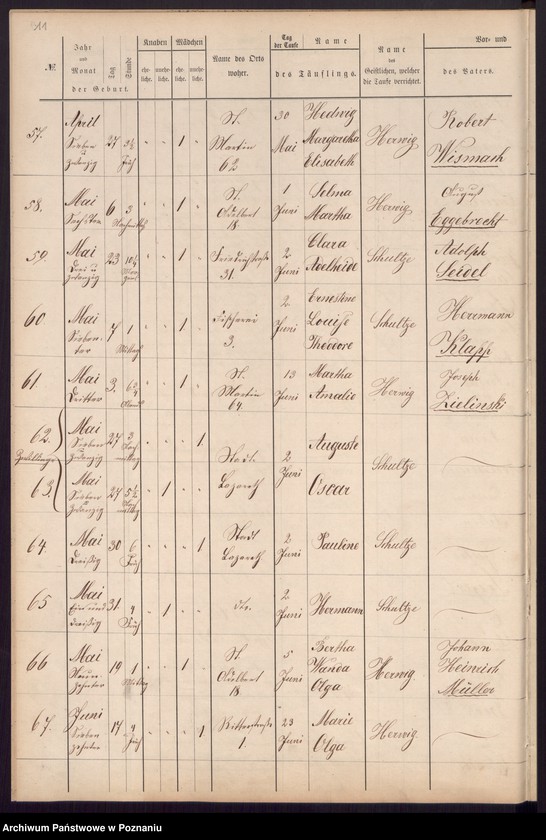 11
№
Jahr und Monat der Geburt.
Tag
Stunde
Knaben
Mädchen
ehe-liche.
unehe-liche.
ehe-liche.
unehe-liche.
Name des Orts woher.
Tag der Taufe
Name
des Täuflings.
Name des Geistlichen, welcher die Taufe verrichtet.
Vor- und
des Vaters.
57. April Sieben u zwanzig 27 Früh 1 St. Martin 62 30 Mai Hedwig Margaretha Elisabeth Herwig Robert Wismach
58. Mai Sechsten 6 3 Nachmittag 1 St. Adalbert 18. 1 Juni Selma Martha Herwig August Eggebrecht
59. Mai Drei u zwanzig 23 1 Friedrichstraße 31 2 Juni Clara Adelheide Schultze Adolph Seidel
60 Mai Sieben-ter 7 1 Mittag 1 Fischerei 3. 2 Juni Ernestine Louise Theodore Schultze Herrmann Klapp
61 Mai Dritter 3. 1 St. Martin 64. 13 Juni Martha Amalie Herwig Joseph Zielinski
62. Zwillinge Mai Sieben u zwanzig 27 3 1 Stadt Lazareth 2 Juni Auguste Schultze
63. Mai Sieben u zwanzig 27 1 Oscar
64. Mai Dreißig 30 6 Früh 1 Stadt Lazareth 2 Juni Pauline Schultze
65 Mai Ein und dreißig 31 4 Früh 1 dto. 2 Juni Hermann Schultze
66 Mai Neun-zehnter 19 1 Mittag 1 St. Adalbert 18 5 Juni Bertha Wanda Olga Herwig Johann Heinrich Müller
67. Juni Sieben zehnter 17 4 Früh 1 Ritterstraße 1. 23 Juni Marie Olga Herwig
Archiwum Państwowe w Poznaniu